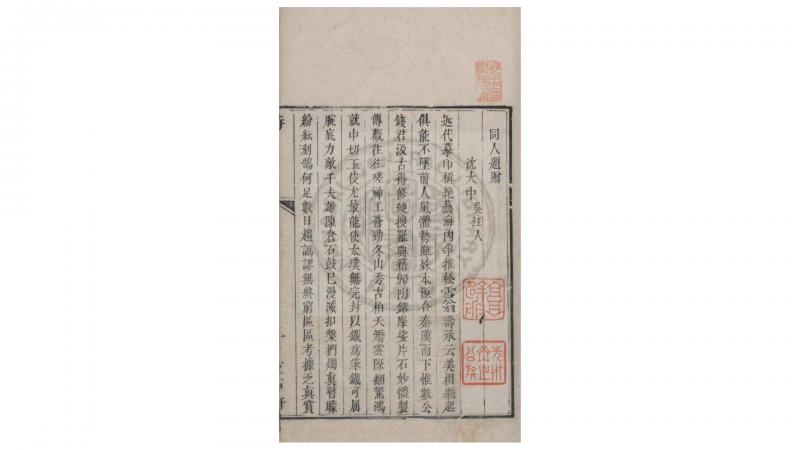 同人題贈
沈大中吳江人
近代摹印稱絶藝海內爭推松雪翁壽承云美相繼起
俱能不墜前人風體勢雖殊本源合秦漢而下惟數公
錢君汲古得修綆搜羅典籍歸陶鎔摩娑片石妙體製
傳觀往往嗟神工蒼勁冬山秀古柏天矯雲際翻驚鴻
就中切玉伎尤最能使太璞無完封以鐵為筆鐵可屈
腕底力敵千夫雄陳倉石鼓已漫滅扣槃捫燭真瞽矇
紛紜刻鵠何足數日趨譌謬無終窮區區考據乏真賞